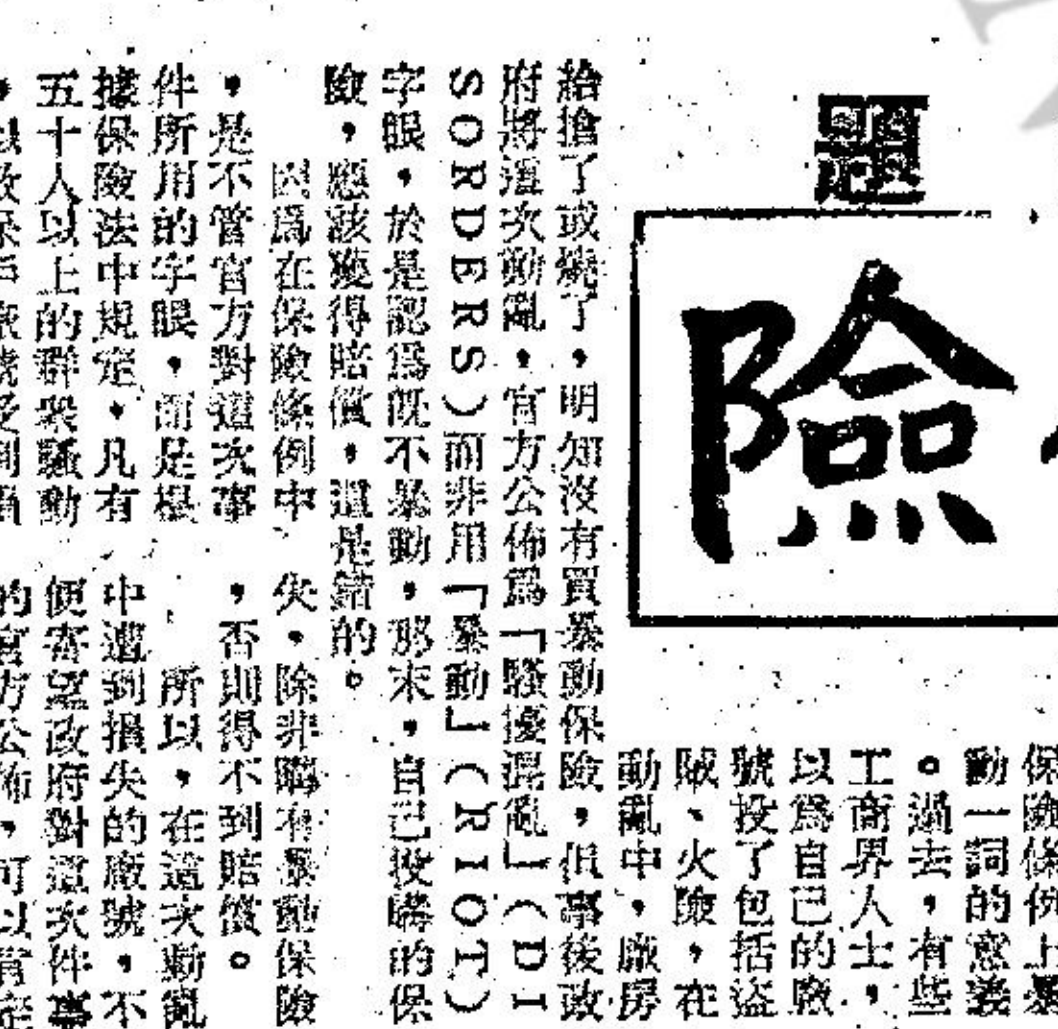 題
險
保險條例上暴
動一詞的意義
。過去，有些
工商界人士，
以爲自己的廠
號投了包括盜
賊、火險，在
動亂中，廠房
給搶了或燒了，明知沒有買暴動保險，但事後政
府將這次動亂，官方公佈爲「騷擾混亂」（DI
SORDERS）而非用「暴動」（RIOT）
字眼，於是認爲既不暴動，那末，自己投購的保
險，應該獲得賠償，這是錯的。
因爲在保險條例中
，是不管官方對這次事
件所用的字眼，而是根
據保險法中規定，凡有
五十人以上的群衆騷動
，以致保戶廠號受到
失，除非購有暴動保險
，否則得不到賠償。
所以，在這次動亂
中遭到損失的廠號，不
便寄望政府對這次件事
的官方公佈，可以肯定